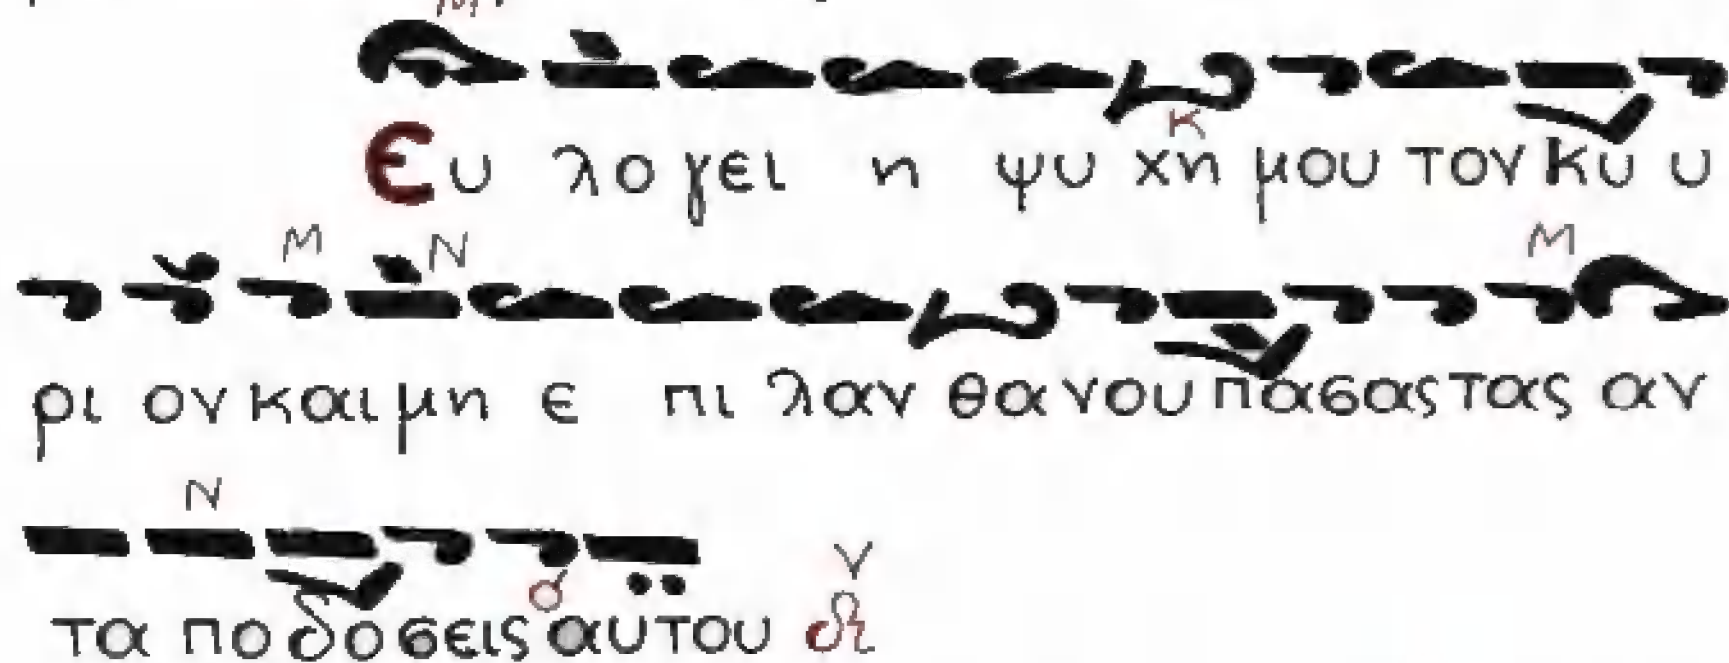 Ευ λο γει η ψυ χη μου τον κυ υ
ρι ον και μη ε πι λαν θα νου πασας τας αν
τα πο δο σεις αυτου